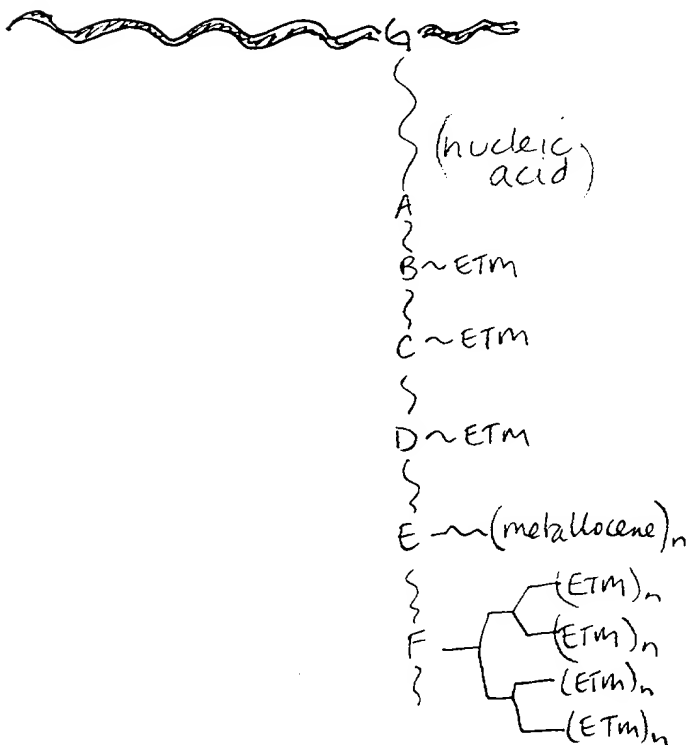 G
(nucleic
acid)
A
B ~ ETM
C ~ ETM
D ~ ETM
E (metallocene)n
(ETM)n
F (ETM)n
(ETM)n
(ETM)n